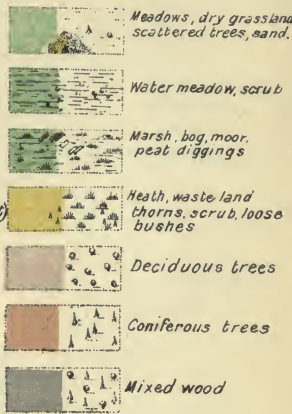 Meadows, dry grassland
scattered trees, sand.
Water meadow, scrub
Marsh, bog, moor,
peat diggings
Heath, waste land
thorns, scrub, loose
bushes
Deciduous trees
Coniferous trees
Mixed wood